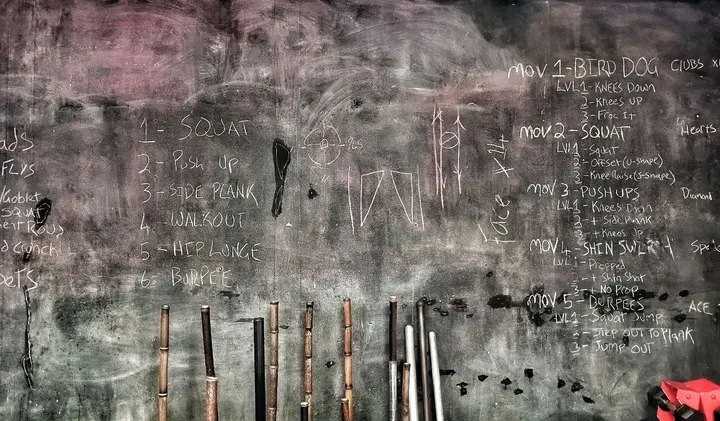 FLYS
Squat
1- SQUAT
2- Push Up
3- SIDE PLANK
4- WALKOUT
5- HIP LUNGE
6- BURPEE
x4
MOV 1-BIRD DOG CLUBS
LVL 1- KNEES DOWN
2- KNEES UP
3- Frog It
MOV 2- SQUAT Hearts
LVL 1- Squat
2- OFFSET (U-SHAPE)
3- Knee Raise (S-shape)
MOV 3- PUSH UPS Diamond
LVL 1- Knees Down
2- + Side Plank
3- + Knees Up
MOV 4- SHIN
LVL 1- Propped
2- + Shin Shot
3- + No Prop
MOV 5- BURPEES ACE
LVL 1- Squat Jump
2- Step OUT To Plank
3- JUMP OUT